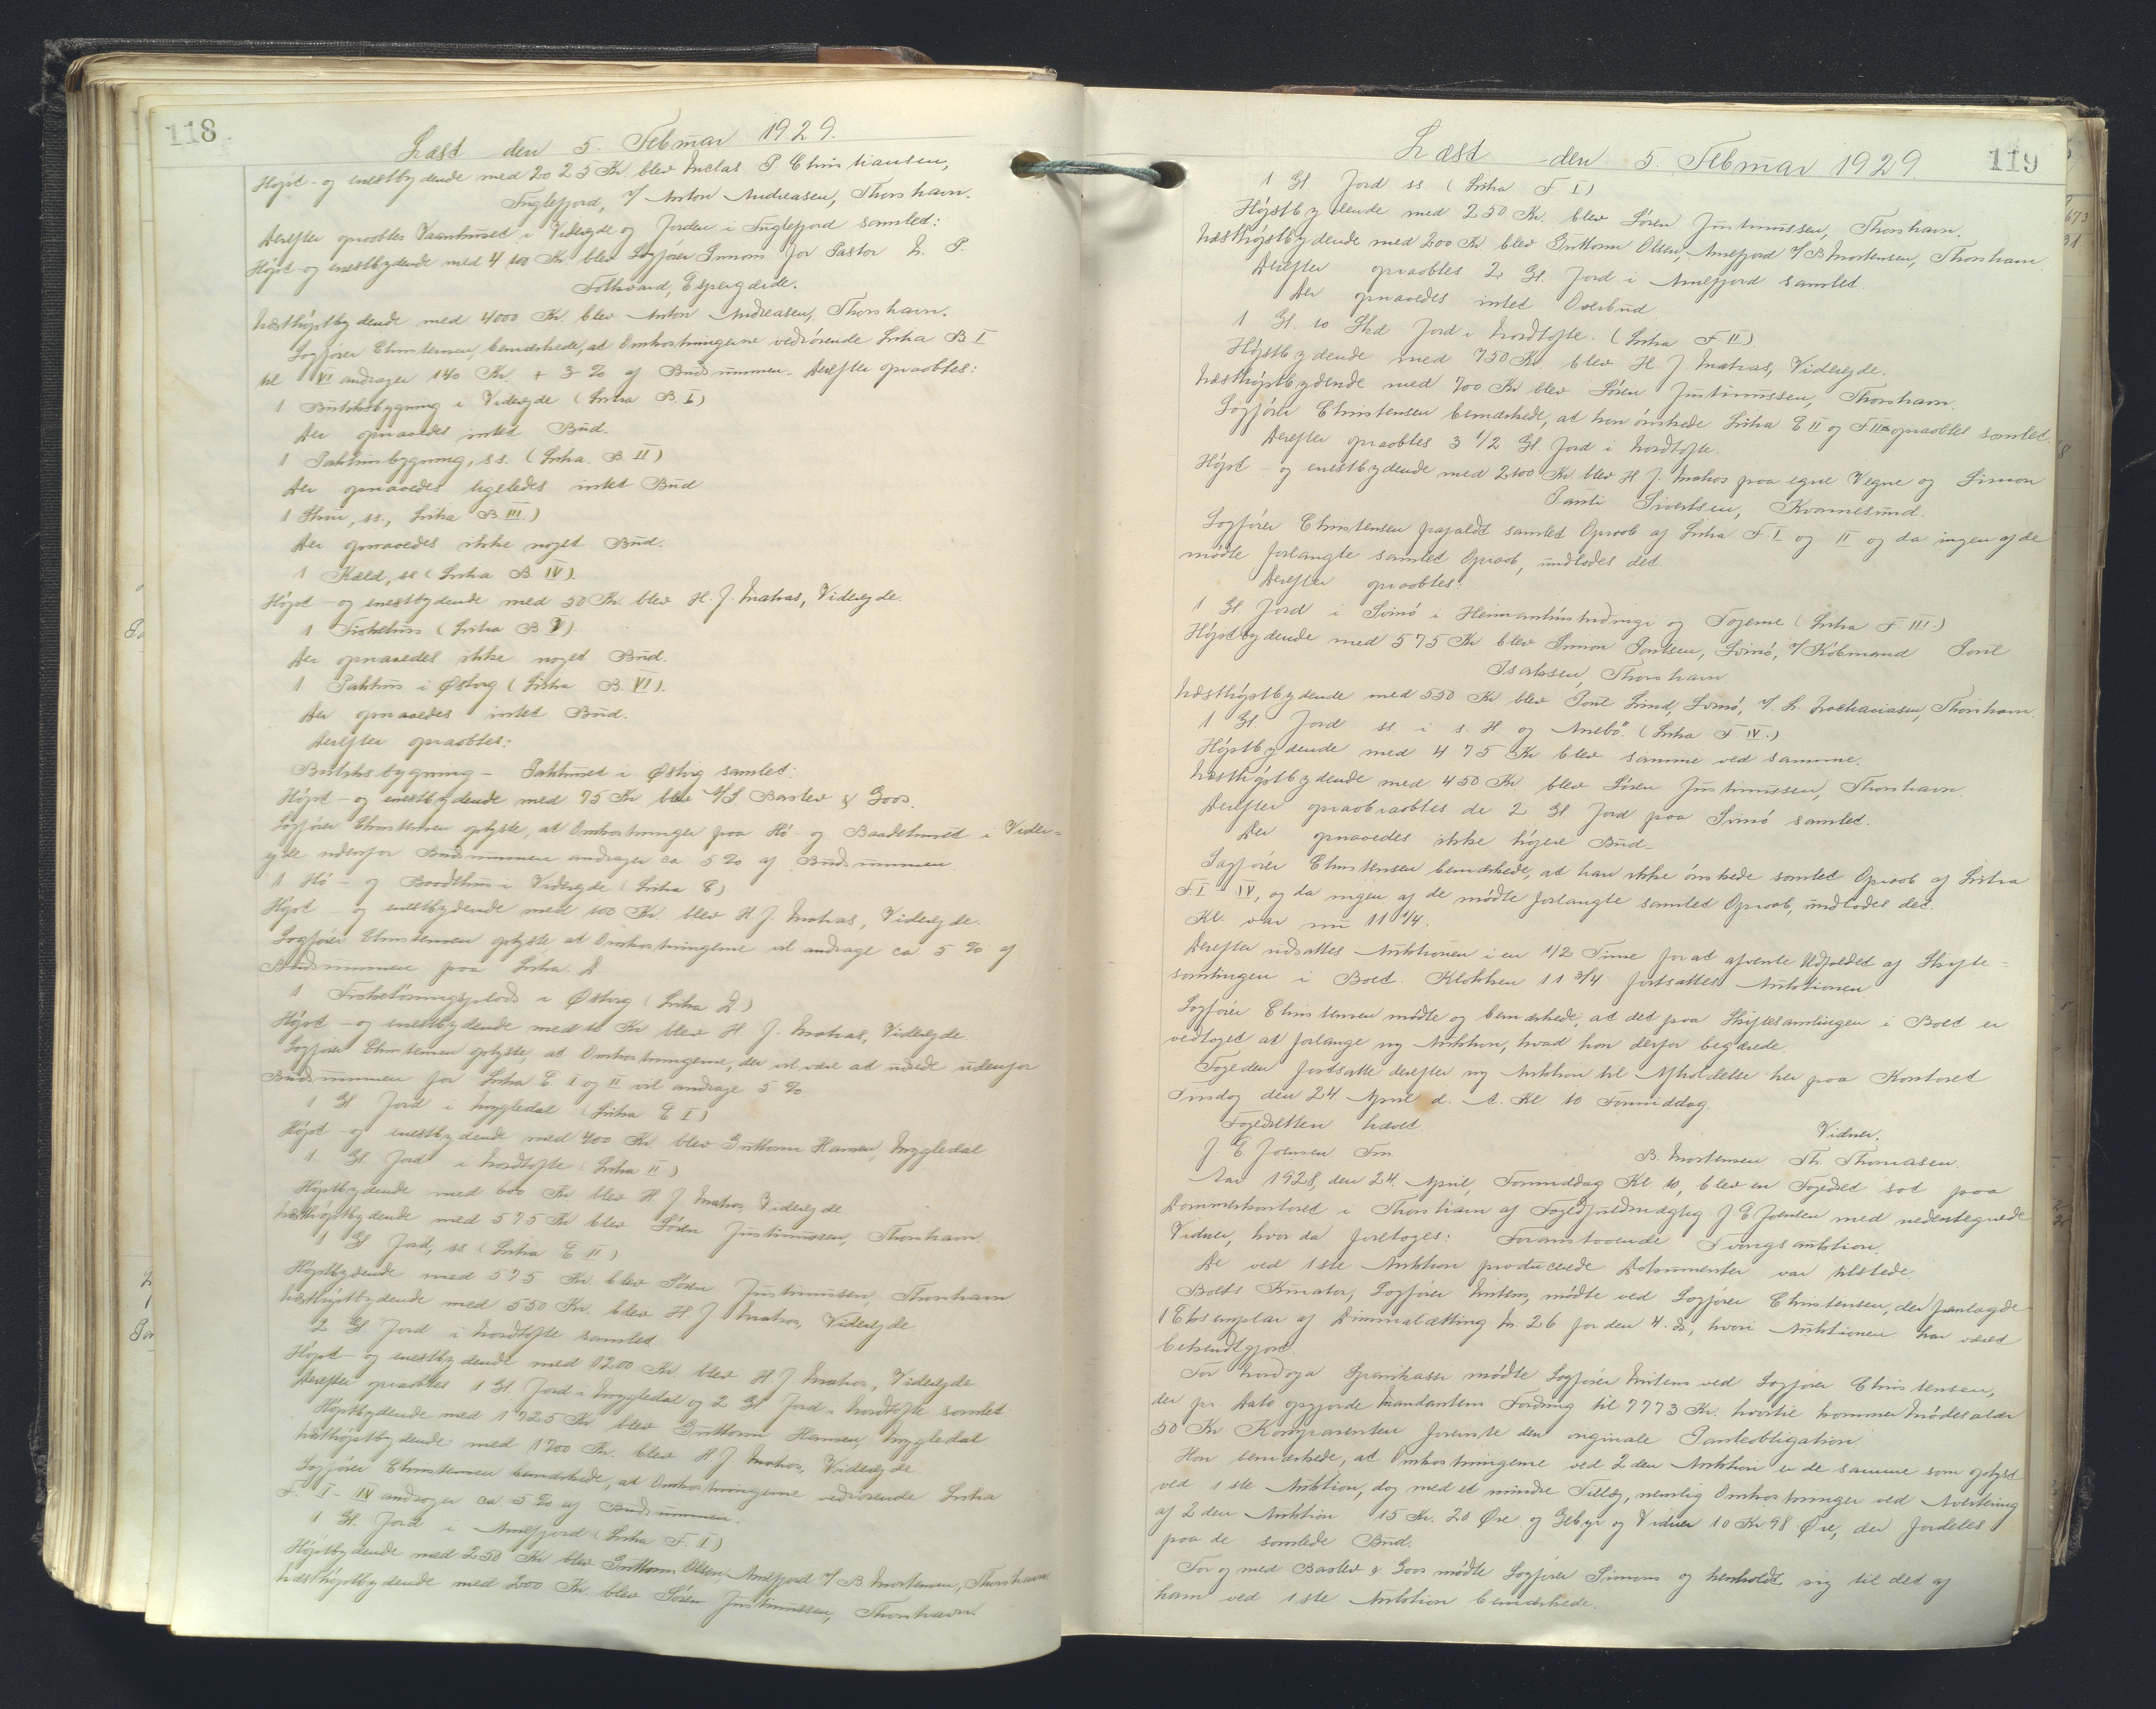 118
Læst den 5. Februar 1929.
Højst- og enestbydende med 2025 Kr. blev Niclas P Christiansen,
Fuglefjord, v/ Anton Andreasen, Thorshavn.
Derefter opraabtes Vaanhuset i Viderejde og Jorden i Fuglefjord samlet:
Højst- og enestbydende med 4 100 Kr. blev Sagfører Simons for Pastor N. P.
Folkvard, Espergærde.
Næsthøjstbydende med 4000 Kr. blev Anton Andreasen, Thorshavn.
Sagfører Christensen bemærkede, at Omkostningerne vedrørende Litra B I
til VI andrager 140 Kr. + 3 % af Budsummen. Derefter opraabtes:
1 Butiksbygning i Viderejde (Litra B. I)
Der opnaaedes intet Bud.
1 Pakhusbygning, ss. (Litra B. II)
Der opnaaedes ligeledes intet Bud
1 Skur, ss., Litra B. III.)
Der opnaaedes ikke noget Bud.
1 Kæld, ss (Litra B. IV).
Højst- og enestbydende med 50 Kr. blev H. J. Matras, Viderejde.
1 Fiskehus (Litra B V).
Der opnaaedes ikke noget Bud.
1 Pakhus i Østvig (Litra B. VI).
Der opnaaedes intet Bud.
Derefter opraabtes:
Butiksbygning - Pakhuset i Østvig samlet:
Højst- og enestbydende med 75 Kr blev A/S. Baslev & Goos.
Sagfører Christensen oplyste, at Omkostninger paa Hø- og Baadehuset i Vider-
ejde udenfor Budsummen andrager ca 5 % af Budsummen
1 Hø- og Baadehus i Viderejde (Litra C)
Højst- og enestbydende med 100 Kr. blev H. J. Matras, Viderejde.
Sagfører Christensen oplyste at Omkostningerne vil andrage ca 5 % af
Budsummen paa Litra. D
1 Fisketørringsplads i Østvig (Litra D)
Højst- og enestbydende med 10 Kr blev H. J. Matras, Viderejde.
Sagfører Christensen oplyste, at Omkostningerne, der vil være at udrede udenfor
Budsummen for Litra E I og II vil andrage 5 %
1 Gl Jord i Mygledal (Litra E I)
Højst- og enestbydende med 400 Kr. blev Guttorm Hansen, Mygledal
1 Gl. Jord i Nordtofte (Litra II)
Højstbydende med 600 Kr blev H. J. Matras, Viderejde
Næsthøjstbydende med 575 Kr blev Søren Justinussen, Thorshavn.
1 Gl Jord, ss (Litra E II)
Højstbydende med 575 Kr blev Søren Justinussen, Thorshavn
Næsthøjstbydende med 550 Kr. blev H. J Matras, Viderejde
2 Gl. Jord i Nordtofte samlet.
Højst- og enestbydende med 1200 Kr. blev H. J Matras, Viderejde.
Derefter opraabtes 1 Gl. Jord i Mygledal og 2 Gl Jord i Nordtofte samlet.
Højstbydende med 1 725 Kr. blev Guttorm Hansen, Mygledal
Næsthøjstbydende med 1700 Kr. blev H J. Matras, Viderejde.
Sagfører Christensen bemærkede, at Omkostningerne vedrørende Litra
F. I - IV andrager ca. 5 % af Budsummen.
1 Gl. Jord i Arnefjord (Litra F. I)
Højstbydende med 250 Kr blev Guttorm Olsen, Arnefjord v/ B. Mortensen, Thorshavn
Næsthøjstbydende med 200 Kr. blev Søren Justinussen, Thorshavn.
119
Læst den 5. Februar 1929
1 Gl. Jord ss (Litra F I)
Højstbydende med 250 Kr. blev Søren Justinussen, Thorshavn.
Næsthøjstbydende med 200 Kr. blev Guttorm Olsen, Arnefjord v/ B Mortensen, Thorshavn
Derefter opraabtes 2 Gl. Jord i Arnefjord samlet.
Der opnaaedes intet Overbud.
1 Gl. 10 Skd Jord i Nordtofte. (Litra F. II)
Højstbydende med 750 Kr. blev H. J. Matras, Viderejde.
Næsthøjstbydende med 700 Kr blev Søren Justinussen, Thorshavn.
Sagfører Christensen bemærkede, at han ønskede Litra E II og F II opraabtes samlet.
Derefter opraabtes 3 1/2 Gl. Jord i Nordtofte.
Højst- og enestbydende med 2100 Kr. blev H. J. Matras paa egne Vegne og Simon
Pauli Sivertsen, Kvannesund.
Sagfører Christensen frafaldt samlet Opraab af Litra F. I og II og da ingen af de
mødte forlangte samlet Opraab, undlodes det.
Derefter opraabtes:
1 Gl Jord i Svinø i Heimantúnshidingi og Togerne (Litra F. III.)
Højstbydende med 575 Kr. blev Simon Poulsen, Svinø, v/ Købmand Poul
Isaksen, Thorshavn
Næsthøjstbydende med 550 Kr blev Poul Lind, Svinø, v. S. Zachariasen, Thorshavn.
1 Gl. Jord ss. i s. H. og Arnebø. (Litra F IV.)
Højstbydende med 475 Kr blev samme ved samme.
Næsthøjstbydende med 450 Kr blev Søren Justinussen, Thorshavn
Derefter opraabraabtes de 2 Gl. Jord paa Svinø samlet.
Der opnaaedes ikke højere Bud-
Sagfører Christensen bemærkede, at han ikke ønskede samlet Opraab af Litra
F. I - IV, og da ingen af de mødte forlangte samlet Opraab, undlodes det.
Kl. var nu 11 1/4.
Derefter udsattes Auktionen i en 1/2 Time for at afvente Udfaldet af Skifte-
samlingen i Boet. Klokken 11 3/4 fortsattes Auktionen.
Sagfører Christensen mødte og bemærkede, at det paa Skiftesamlingen i Boet er
vedtaget at forlange ny Auktion, hvad han derfor begærede.
Fogeden fortsatte derefter ny Auktion til Afholdelse her paa Kontoret
Tirsdag den 24 April d. A. Kl. 10 Formiddag.
Fogedretten hævet.
J. E. Joensen Fm
Vidner.
B. Mortensen Th. Thomasen.
Aar 1928, den 24. April, Formiddag Kl 10, blev en Fogedret sat paa
Dommerkontoret i Thorshavn af Fogedfuldmægtig J. E. Joensen med nedentegnede
Vidner, hvor da foretoges: Foranstaaende Tvangsauktion.
De ved 1ste Auktion producerede Dokumenter var tilstede.
Boets Kurator, Sagfører Mitens, mødte ved Sagfører Christensen, der fremlagde
1 Eksemplar af Dimmalætting Nr. 26 for den 4. ds, hvori Auktionen har været
bekendtgjort.
For Nordoya Sparikassi mødte Sagfører Mitens ved Sagfører Christensen,
der pr. Dato opgjorde Mandantens Fordring til 7773 Kr. hvortil kommer Mødesalær
50 Kr Komparenten foreviste den originale Panteobligation.
Han bemærkede, at Omkostningerne ved 2den Auktion er de samme som oplyst
ved 1ste Auktion, dog med et mindre Tillæg, nemlig Omkostninger ved Avertering
af 2den Auktion 15 Kr. 20 Øre og Gebyr og Vidner 10 Kr 98 Øre, der fordeles
paa de samlede Bud.
For og med Baslev & Goos mødte Sagfører Simons og henholdt sig til det af
ham ved 1ste Auktion bemærkede.